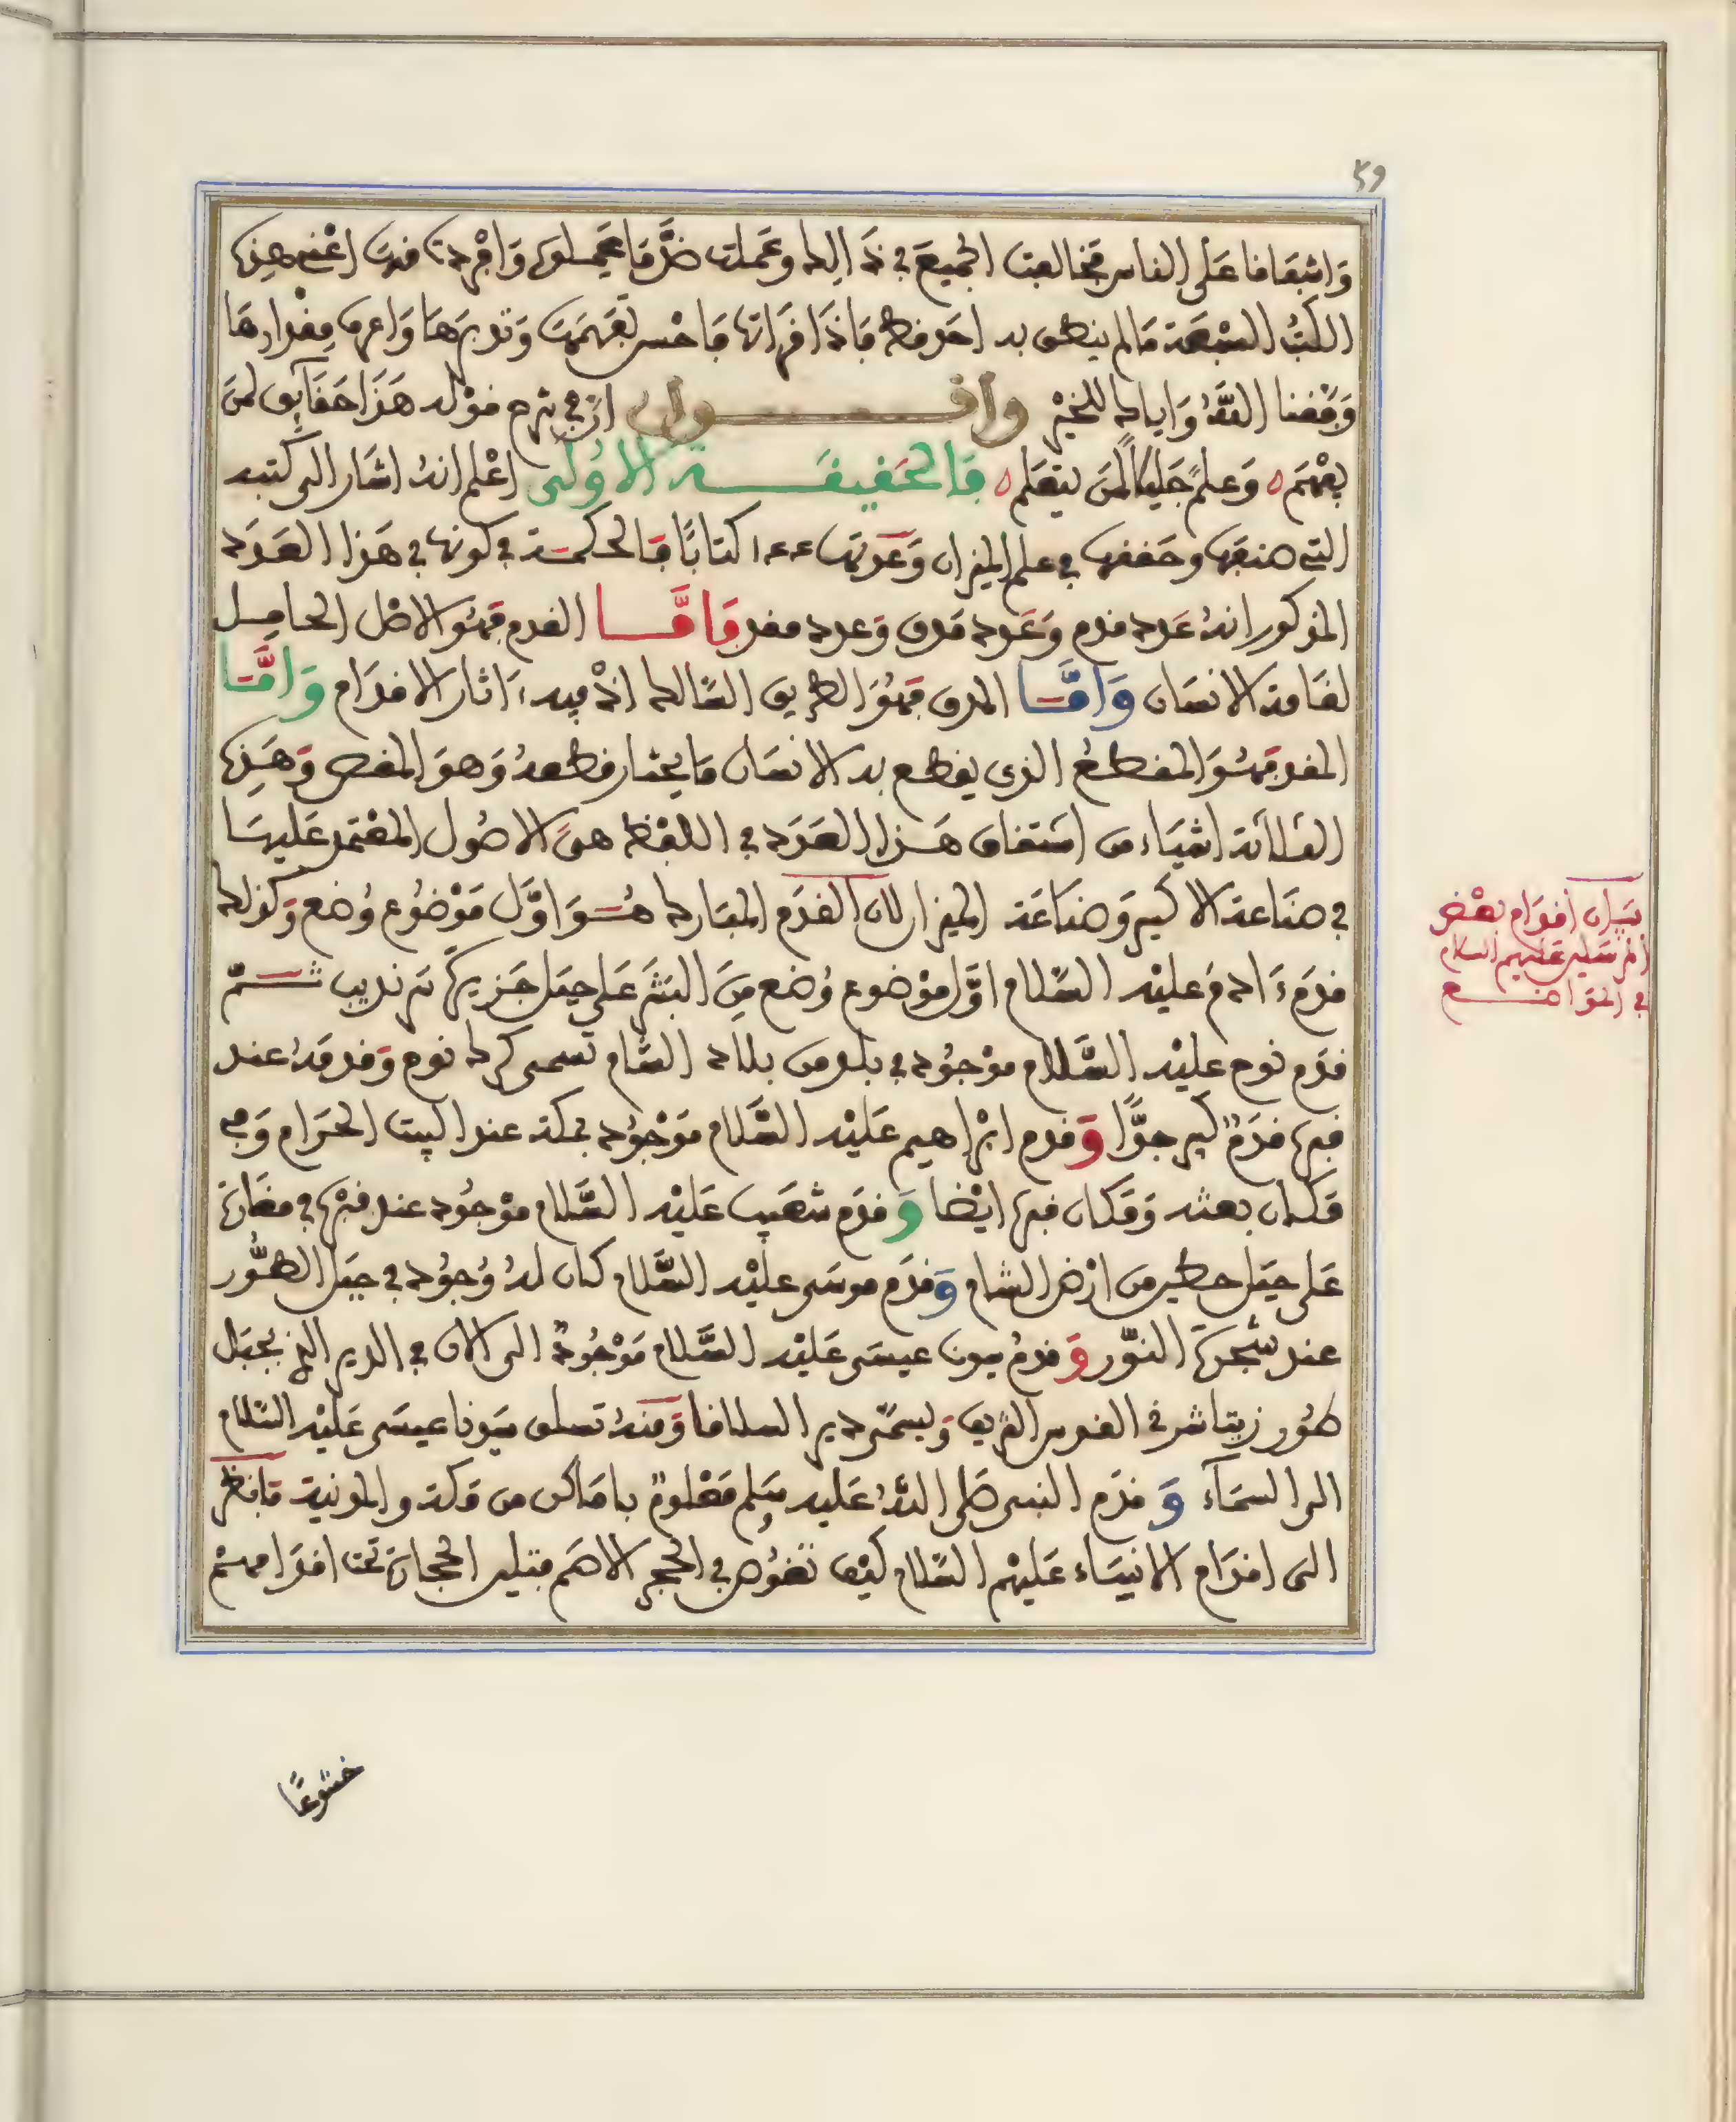 ٤٩
واشفاقا على الناس فخالفت الجميع في ذالك وعملت ضد ما عملوه وافردت فيه اعني هذه
الكتب السبعة ما لم ينطق به احد قط فاذا قراتها فاحسن تفهمها وتدبرها واعرف مقدارها
وفقنا الله واياك للخير واقــــــول ان في شرح قوله هذا حقايق لمن
يفهم وعلم جليل لمن يتعلم فالحقيقــــة الاولى اعلم انه اشار الى كتبه
التي صنفها وحققها في علم الميزان وعدتها ١٤٤ كتابا فالحكمة في كونها في هذا العدد
المذكور انه عدد قدم وعدد مدق وعدد مقد فامــا القدم فهو الاصل الحامل
لقامة الانسان وامــا المدق فهو الطريق السالك اذ فيه ءاثار الاقدام وامــا
المقد فهو المقطع الذي يقطع به الانسان ما يختار قطعه وهو المقص وهذه
الثلاثة اشياء من اشتقاق هذا العدد في اللفظ هي الاصول المعتمد عليها
في صناعة الاكسير وصناعة الميزان لان القدم المبارك هو اول موضوع وضع وكذلك
قدم ءادم عليه السلام اول موضوع وضع من البشر على جبل جزيرة سرنديب ثــم
قدم نوح عليه السلام موجود في بلد من بلاد الشام تسمى كرك نوح وقدمه عند
قبره قدم كبير جدا وقدم ابراهيم عليه السلام موجود بمكة عند البيت الحرام وفي
مكان بعثه ومكان قبره ايضا وقدم شعيب عليه السلام موجود عند قبره في مغارة
على جبل حطين من ارض الشام وقدم موسى عليه السلام كان له وجود في جبل الطور
عند شجرة النور وقدم سيدنا عيسى عليه السلام موجود الى الان في الدير الذي بجبل
طور زيتا شرقي القدس الشريف ويسمى دير السلاقا ومنه تسلق سيدنا عيسى عليه السلام
الى السماء وقدم النبي صلى الله عليه وسلم معلوم باماكن من مكة والمدينة فانظر
الى اقدام الانبياء عليهم السلام كيف تغوص في الحجر الاصم فتلين الحجارة تحت اقدامهم
بيان اقدام بعض
المرسلين عليهم السلام
في المواضــع
خشوعا